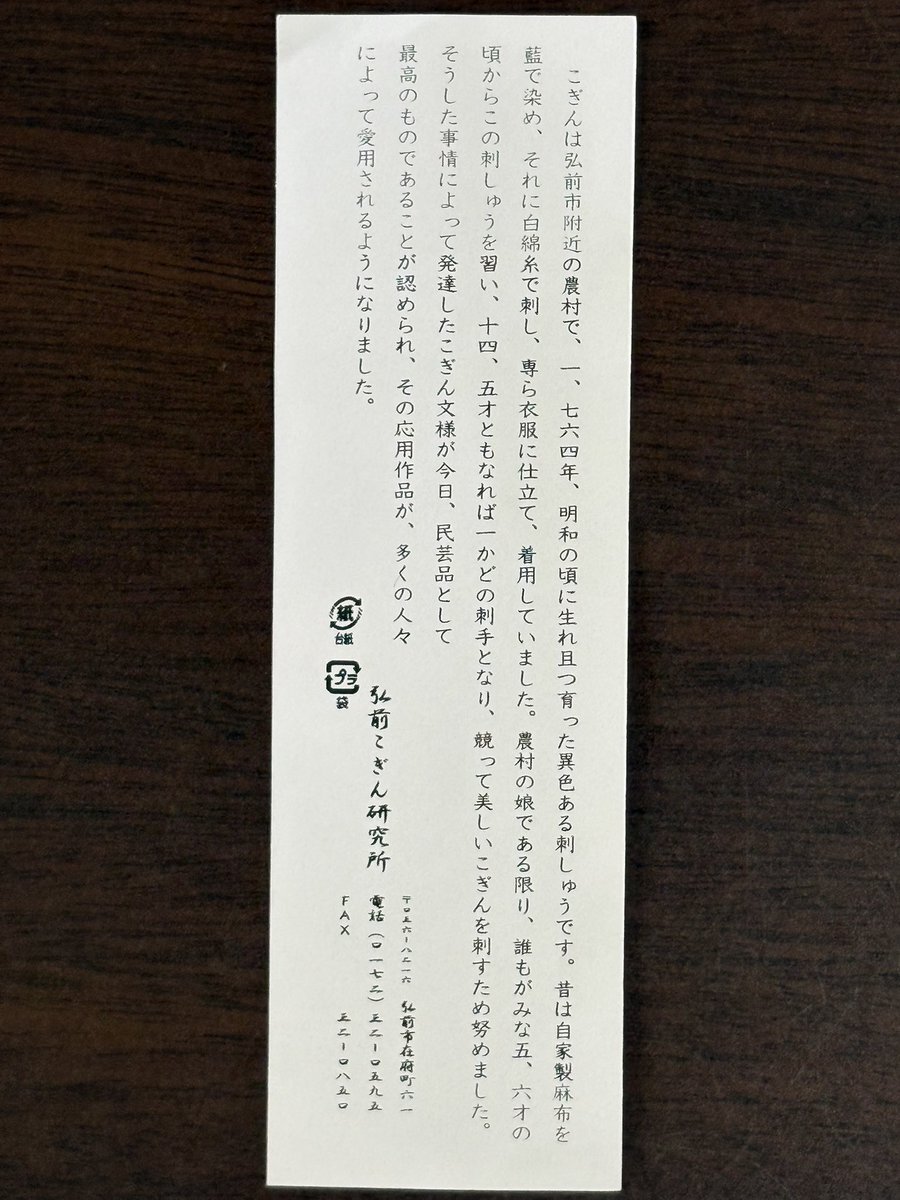 こぎんは弘前市附近の農村で、一、七六四年、明和の頃に生れ且つ育った異色ある刺しゅうです。昔は自家製麻布を
藍で染め、それに白綿糸で刺し、専ら衣服に仕立て、着用していました。農村の娘である限り、誰もがみな五、六才の
頃からこの刺しゅうを習い、十四、五才ともなれば一かどの刺手となり、競って美しいこぎんを刺すため努めました。
そうした事情によって発達したこぎん文様が今日、民芸品として
最高のものであることが認められ、その応用作品が、多くの人々
によって愛用されるようになりました。
紙
台紙
プラ
袋
弘前こぎん研究所
〒〇三六-八二一六 弘前市在府町六一
電話(〇一七二)三二-〇五九五
FAX 三二-〇八五〇